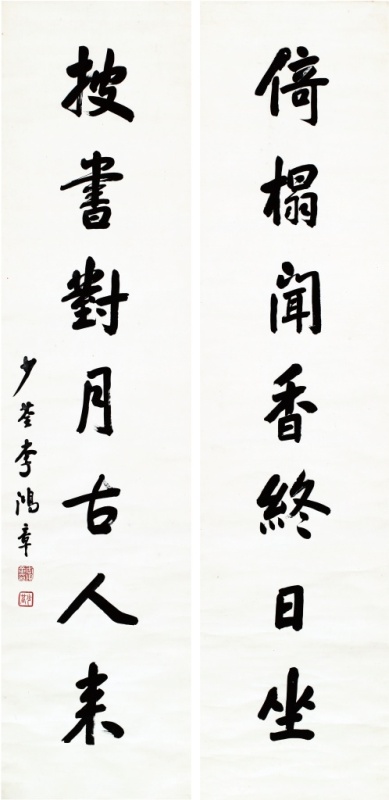 倚榻聞香終日坐
披書對月古人来
少荃李鴻章